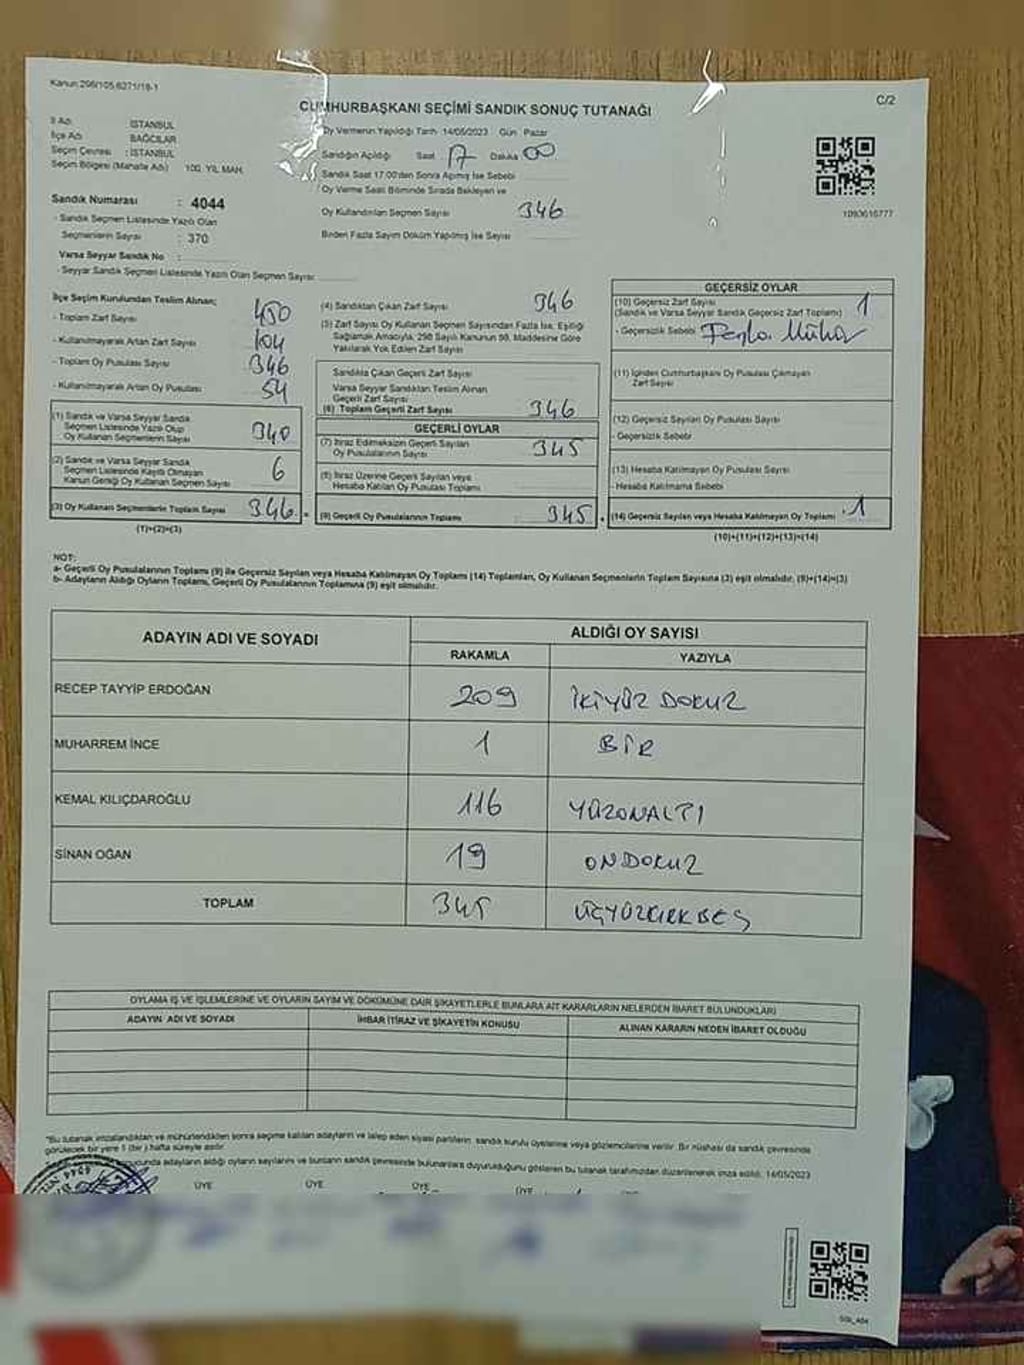 Kanun:298/105,6271/19-1
C/2
CUMHURBAŞKANI SEÇİMİ SANDIK SONUÇ TUTANAĞI
İl Adı : İSTANBUL
İlçe Adı : BAĞCILAR
Seçim Çevresi : İSTANBUL
Seçim Bölgesi (Mahalle Adı) 100. YIL MAH.
Oy Vermenin Yapıldığı Tarih 14/05/2023 Gün Pazar
Sandığın Açıldığı Saat 17 Dakika 00
Sandık Saat 17:00'den Sonra Açılmış İse Sebebi
Oy Verme Saati Bitiminde Sırada Bekleyen ve
Oy Kullandırılan Seçmen Sayısı 346
Birden Fazla Sayım Döküm Yapılmış İse Sayısı
Sandık Numarası : 4044
- Sandık Seçmen Listesinde Yazılı Olan
Seçmenlerin Sayısı : 370
Varsa Seyyar Sandık No :
- Seyyar Sandık Seçmen Listesinde Yazılı Olan Seçmen Sayısı:
İlçe Seçim Kurulundan Teslim Alınan;
- Toplam Zarf Sayısı 450
- Kullanılmayarak Artan Zarf Sayısı 104
- Toplam Oy Pusulası Sayısı 346
- Kullanılmayarak Artan Oy Pusulası 54
(1) Sandık ve Varsa Seyyar Sandık
Seçmen Listesinde Yazılı Olup
Oy Kullanan Seçmenlerin Sayısı 340
(2) Sandık ve Varsa Seyyar Sandık
Seçmen Listesinde Kayıtlı Olmayan
Kanun Gereği Oy Kullanan Seçmen Sayısı 6
(3) Oy Kullanan Seçmenlerin Toplam Sayısı 346
(1)+(2)=(3)
(4) Sandıktan Çıkan Zarf Sayısı 346
(5) Zarf Sayısı Oy Kullanan Seçmen Sayısından Fazla İse, Eşitliği
Sağlamak Amacıyla, 298 Sayılı Kanunun 98. Maddesine Göre
Yakılarak Yok Edilen Zarf Sayısı
Sandıkta Çıkan Geçerli Zarf Sayısı
Varsa Seyyar Sandıktan Teslim Alınan
Geçerli Zarf Sayısı
(6) Toplam Geçerli Zarf Sayısı 346
GEÇERLİ OYLAR
(7) İtiraz Edilmeksizin Geçerli Sayılan
Oy Pusulalarının Sayısı 345
(8) İtiraz Üzerine Geçerli Sayılan veya
Hesaba Katılan Oy Pusulası Toplamı
(9) Geçerli Oy Pusulalarının Toplamı 345
1093616777
GEÇERSİZ OYLAR
(10) Geçersiz Zarf Sayısı
(Sandık ve Varsa Seyyar Sandık Geçersiz Zarf Toplamı) 1
- Geçersizlik Sebebi Fazla Mühür
(11) İçinden Cumhurbaşkanı Oy Pusulası Çıkmayan
Zarf Sayısı
(12) Geçersiz Sayılan Oy Pusulası Sayısı
- Geçersizlik Sebebi
(13) Hesaba Katılmayan Oy Pusulası Sayısı
- Hesaba Katılmama Sebebi
(14) Geçersiz Sayılan veya Hesaba Katılmayan Oy Toplamı 1
(10)+(11)+(12)+(13)=(14)
NOT:
a- Geçerli Oy Pusulalarının Toplamı (9) ile Geçersiz Sayılan veya Hesaba Katılmayan Oy Toplamı (14) Toplamları, Oy Kullanan Seçmenlerin Toplam Sayısına (3) eşit olmalıdır, (9)+(14)=(3)
b- Adayların Aldığı Oyların Toplamı, Geçerli Oy Pusulalarının Toplamına (9) eşit olmalıdır.
ADAYIN ADI VE SOYADI ALDIĞI OY SAYISI
RAKAMLA YAZIYLA
RECEP TAYYİP ERDOĞAN 209 İKİYÜZ DOKUZ
MUHARREM İNCE 1 BİR
KEMAL KILIÇDAROĞLU 116 YÜZONALTI
SİNAN OĞAN 19 ONDOKUZ
TOPLAM 345 ÜÇYÜZKIRKBEŞ
OYLAMA İŞ VE İŞLEMLERİNE VE OYLARIN SAYIM VE DÖKÜMÜNE DAİR ŞİKAYETLERLE BUNLARA AİT KARARLARIN NELERDEN İBARET BULUNDUKLARI
ADAYIN ADI VE SOYADI İHBAR İTİRAZ VE ŞİKAYETİN KONUSU ALINAN KARARIN NEDEN İBARET OLDUĞU
*Bu tutanak imzalandıktan ve mühürlendikten sonra seçime katılan adayların ve talep eden siyasi partilerin sandık kurulu üyelerine veya gözlemcilerine verilir. Bir nüshası da sandık çevresinde
görülecek bir yere 1 (bir) hafta süreyle asılır.
adayların aldığı oyların sayılarını ve bunların sandık çevresinde bulunanlara duyurulduğunu gösteren bu tutanak tarafımızdan düzenlenerek imza edildi. 14/05/2023
ÜYE ÜYE ÜYE ÜYE